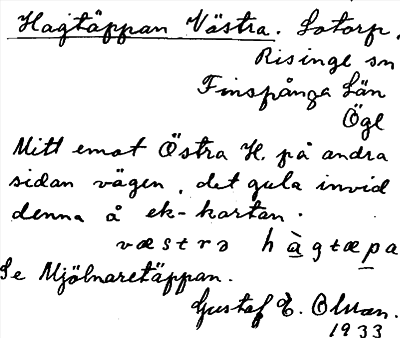 Hagtäppan Västra. Lotorp.
Risinge sn
Finspånga Län
Ögl
Mitt emot Östra H. på andra
sidan vägen, det gula invid
denna å ek-kartan.
væstrə hàgtæpa
Se Mjölnaretäppan.
Gustaf E. Olsson.
1933